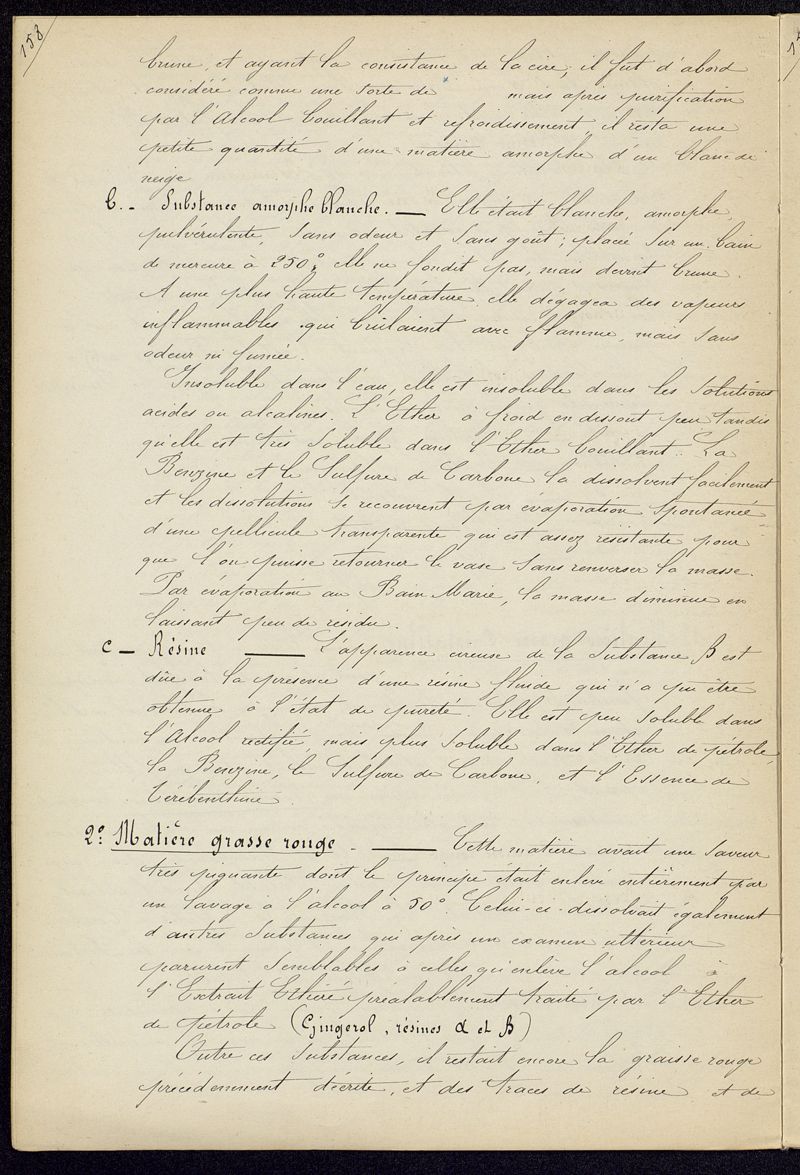 158
brune, et ayant la consistance de la cire; il fut d'abord
considéré comme une sorte de mais après purification
par l'Alcool bouillant et refroidissement, il resta une
petite quantité d'une matière amorphe d'un blanc de
neige
b. - Substance amorphe blanche. — Elle était blanche, amorphe,
pulvérulente, sans odeur et sans goût; placée sur un bain
de mercure à 250°, elle ne fondit pas, mais devint brune.
A une plus haute température, elle dégagea des vapeurs
inflammables qui brûlaient avec flamme, mais sans
odeur ni fumée.
Insoluble dans l'eau, elle est insoluble dans les solutions
acides ou alcalines. L'Ether à froid en dissout peu tandis
qu'elle est très soluble dans l'Ether bouillant. La
Benzine et le Sulfure de Carbone la dissolvent facilement
et les dissolutions se recouvrent par évaporation spontanée
d'une pellicule transparente qui est assez résistante pour
que l'on puisse retourner le vase sans renverser la masse.
Par évaporation au Bain Marie, la masse diminue en
laissant peu de résidu.
c - Résine — L'apparence cireuse de la Substance β est
dûe à la présence d'une résine fluide qui n'a pu être
obtenue à l'état de pureté. Elle est peu soluble dans
l'Alcool rectifié, mais plus soluble dans l'Ether de pétrole,
la Benzine, le Sulfure de Carbone, et l'Essence de
Térébenthine.
2° Matière grasse rouge. — Cette matière avait une saveur
très piquante dont le principe était enlevé entièrement par
un lavage à l'alcool à 50°. Celui-ci dissolvait également
d'autres substances qui après un examen ultérieur
parurent semblables à celles qu'enlève l'alcool à
l'Extrait Ethéré préalablement traité par l'Ether
de pétrole (Gingerol, résines α et β)
Outre ces substances, il restait encore la graisse rouge
précédemment décrite, et des traces de résine et de